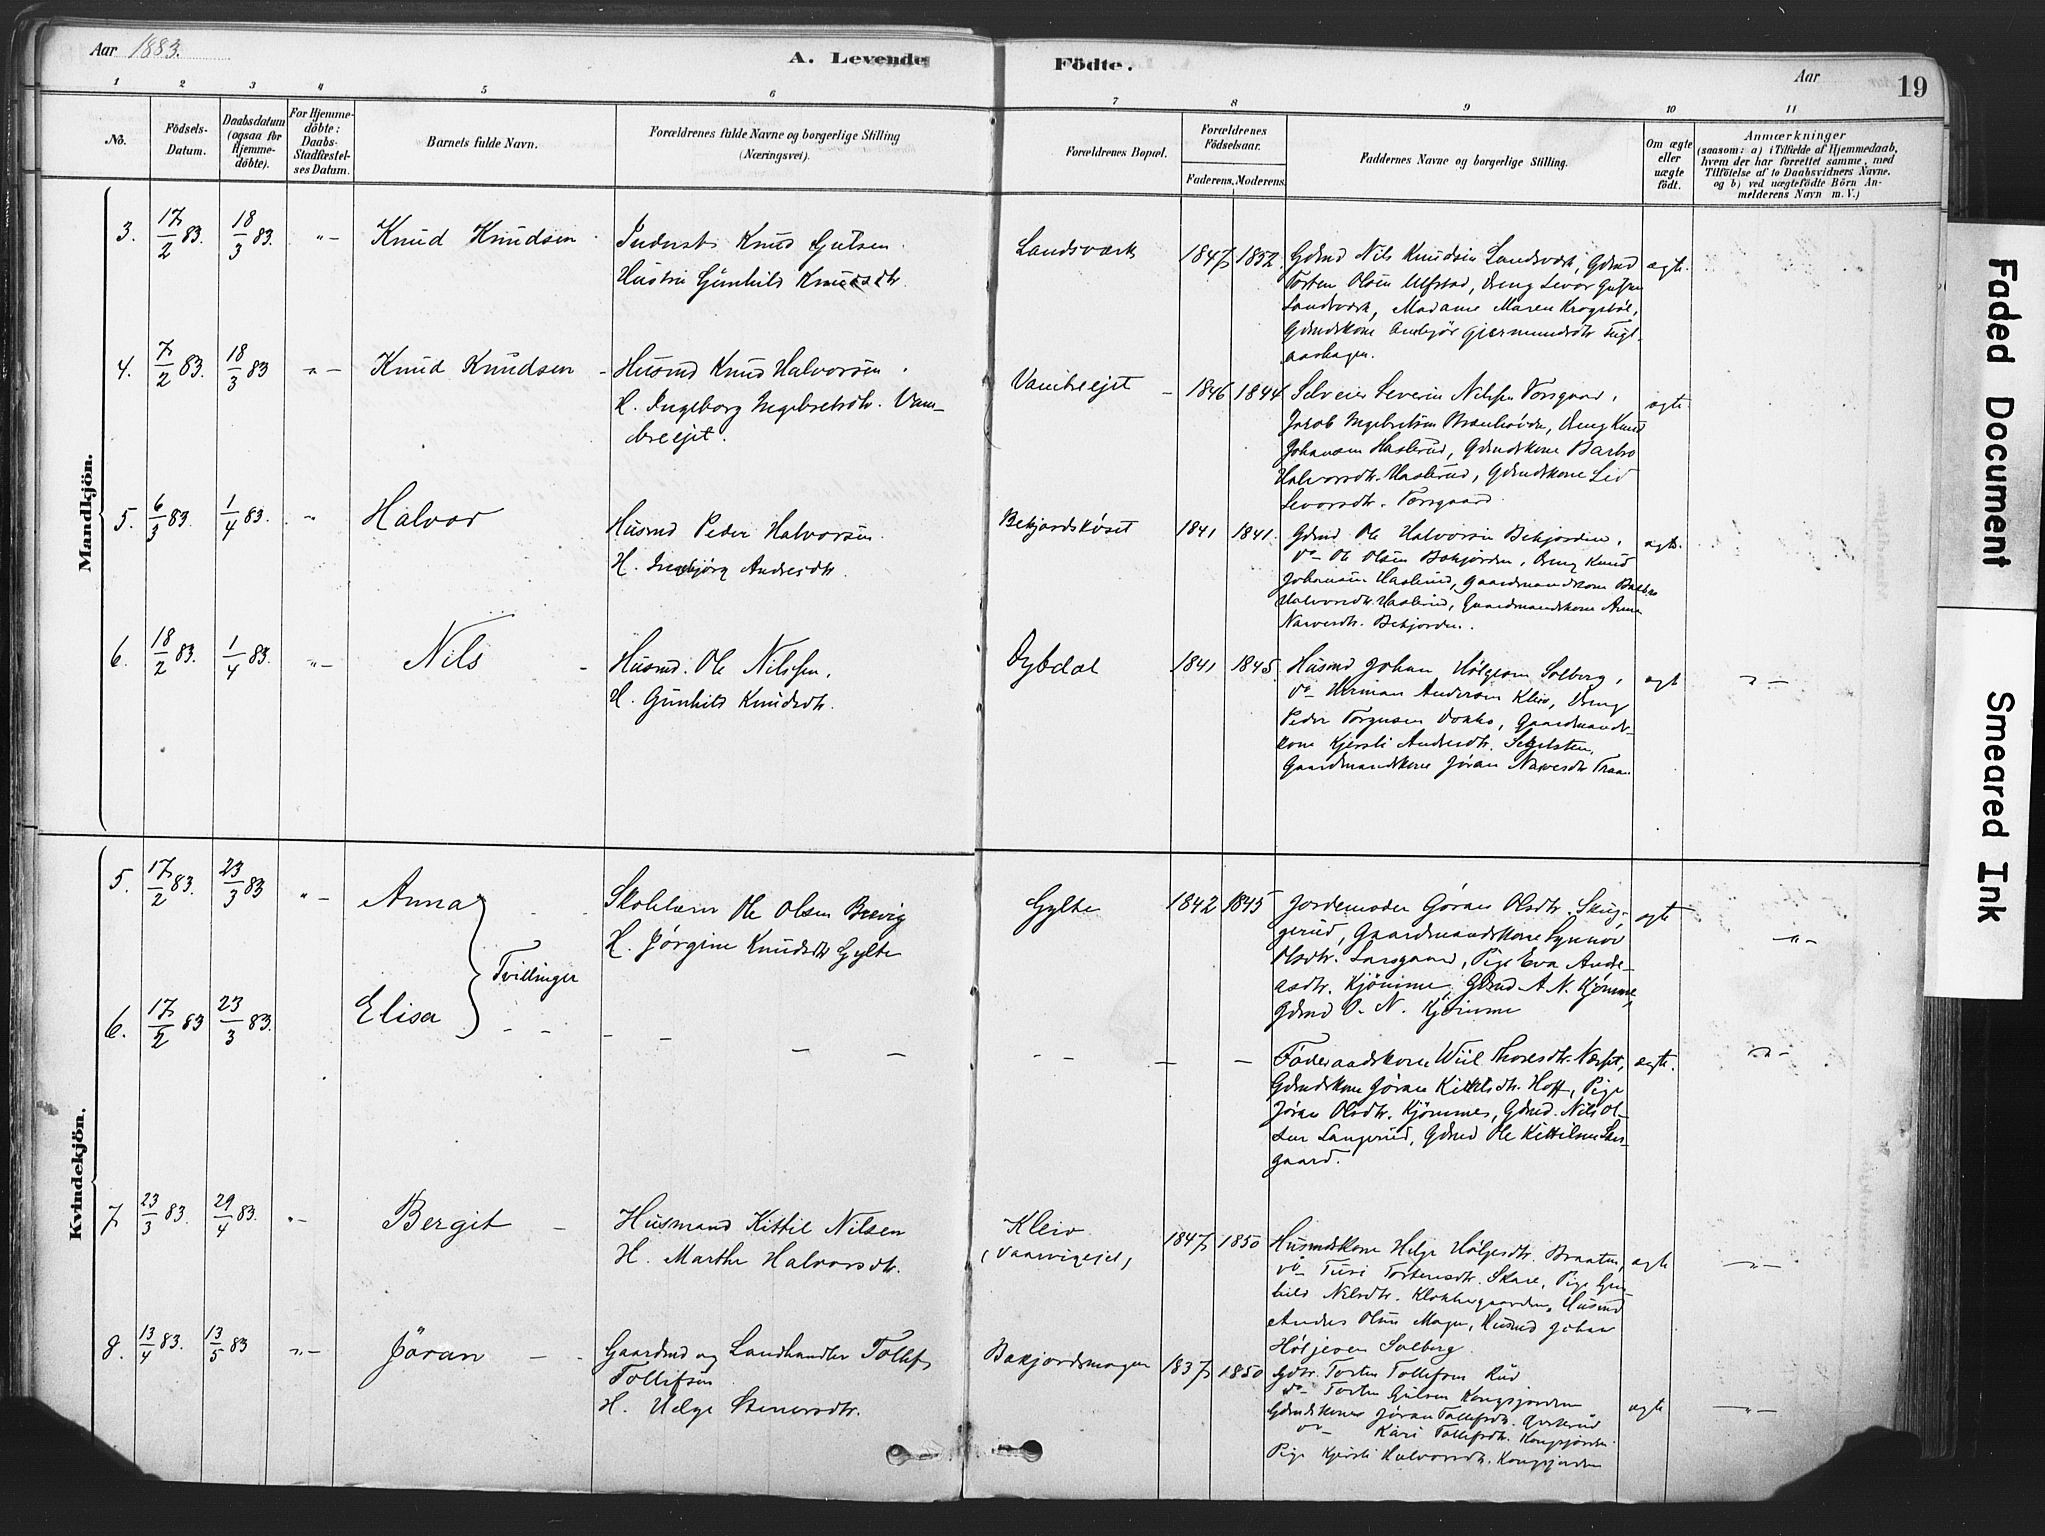 Aar 1883.
A. Levende Födte.
Aar
19
1 2 3 4 5 6 7 8 9 10 11
No.
Födsels-
Datum.
Daabsdatum
(ogsaa for
Hjemme-
döbte).
For Hjemme-
döbte:
Daabs-
Stadfæstel-
ses Datum.
Barnets fulde Navn.
Forældrenes fulde Navne og borgerlige Stilling
(Næringsvei).
Forældrenes Bopæl.
Forældrenes
Födselsaar.
Faderens. Moderens.
Faddernes Navne og borgerlige Stilling.
Om ægte
eller
uægte
födt.
Anmærkninger
(saasom: a) i Tilfælde af Hjemmedaab,
hvem der har forrettet samme, med
Tilföielse af to Daabsvidners Navne.
og b) ved uægtefödte Börn An-
melderens Navn m. V.)
Mandkjön.
3. 17/2 83. 18/3 83. "– Knud Knudsen
Knud Gulsen.
Hustru Gunhild Knudsdtr.
Landsværk 1847 1852.
Gdmd Nils Knudsen Landsværk, Gdmd
Torsten Olsen Ulfstad, Dreng Levor Gulsen
Landsværk, Madame Maren Krogstöl,
Gdmdskone Anbjør Gjermundsdtr
aashagen.
ægte.
4. 7/2 83. 18/3 83 "– Knud Knudsen –
Husmd Knud Halvorsen.
H. Ingeborg Ingebretsdtr.
ejet.
1846 1844
Selveier Severin Nilsen Forsgaard,
Jacob Ingebretsen, Dreng Knud
Johansen Haslerud, Gdmdskone Barbro
Halvorsdtr. Haslerud, Gdmdskone Liv
Levorsdtr. Forsgaard.
ægte.
5. 6/3 83. 1/4 83. " Halvor
Husmd Peder Halvorsen.
H. Ingebjørg Andersdtr.
1841 1841.
Gdmd Ole Halvorsen Bekjorden,
do Ole Olsen Bekjorden, Dreng Knud
Johansen Haslerud, Gaardmandskone Barbro
Halvorsdtr. Haslerud, Gaardmandskone Anne
Narvesdtr. Bekjorden.
ægte.
6. 18/2 83. 1/4 83. "– Nils –
Husmd. Ole Nilssen.
H. Gunhild Knudsdtr.
Dybdal 1841 1845.
Husmd Johan Solberg,
do Herman Andersen Kleiv, Dreng
Peder Torgersen Dokko, Gaardmands-
kone Kjersti Andersdtr.
Gaardmandskone Jøran Narvesdtr Traan
ægte "–
Kvindekjön.
5. 17/2 83. 23/3 83 "– Anna
Tvillinger
Skolelærer Ole Olsen Brevig
H. Jørgine Knudsdtr Gylte
Gylte 1842 1845
Jordemoder Gøran Olsdtr. Skug-
gerud, Gaardmandskone Synnöv
Olsdtr. Larsgaard, Pige Eva Andre-
asdtr. Kjømme, Gdmd A. N. Kjømme,
Gdmd O. N. Kjømme
ægte "–
6. 17/2 83 23/3 83. Elisa – – – – – – – – – –
Føderaadskone Wiil Thoresdtr.
Gdmdskone Jøran Kittilsdtr. Hoff, Pige
Jøran Olsdtr. Kjömmes, Gdmd. Nils Ol-
sen Langerud, Gdmd Ole Kittilsen Lars-
gaard.
ægte. "–
7 23/3 83. 29/4 83. "– Bergit –
Husmand Kittil Nilsen
H. Marthe Halvorsdtr.
Kleiv
(Vaarvigejet)
1847 1850
Husmdskone Helge Holgesdtr. Braaten,
do Turi Torstensdtr. Skare, Pige Gun-
hild Nilsdtr. Klokkergaarden, Husmd
Anders Olsen Moge, Husmd Johan
Solberg.
ægte "–
8. 13/4 83. 13/5 83 "– Jöran – –
Gaardmd og Landhandler Tollef
Tollefsen
H. Helge Stenersdtr.
Bekjordsmogen 1837 1850
Gdbr. Torsten Tollefsen Rud
do Torsten Gulsen Kongsjorden
Gdmdskone Jøran Tollefsdtr.
do Kari Tollefsdtr. Kongsjorden
Pige Kjersti Halvorsdtr. Kongsjorden
ægte "–
Faded Document
Smeared Ink